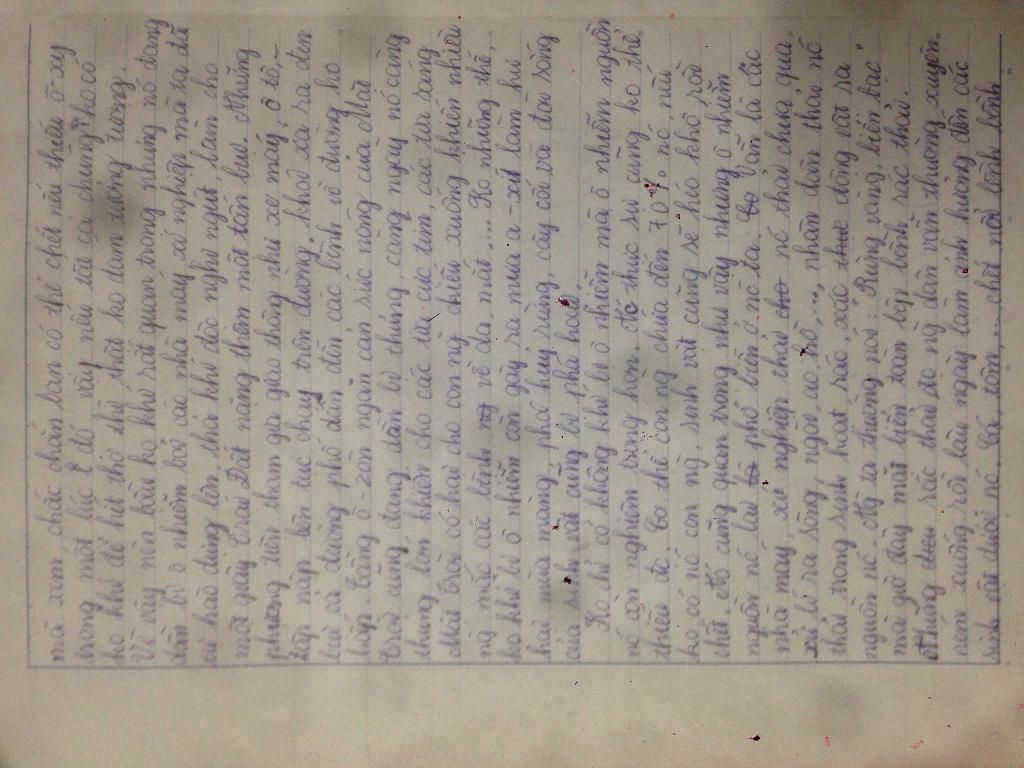 mà xem chắc chắn bạn có thể chết nếu thiếu ô-xy
trong một lúc. Từ đó vậy nếu tất cả chúng ta ko có
ko khí để hít thở thì thật ko dám tưởng tượng.
Vì vậy nên bầu ko khí rất quan trọng nhưng nó đang
dần bị ô nhiễm bởi các nhà máy, xí nghiệp mà ta đã
tự hào dựng lên, thải khí độc nghi ngút, làm cho
một quầy Trái Đất nặng thêm một tấn bụi. Những
phương tiện tham gia giao thông như xe máy, ô tô,...
tấp nập liên tục chạy trên đường, khói xả ra đen
bụi cả đường phố dẫn đến các bệnh về đường hô
hấp. Tầng ô-zôn ngăn cản sức nóng của Mặt
Trời cũng đang dần bị thủng, càng ngày nó càng
thủng lớn khiến cho các tia cực tím, các tia sáng
Mặt Trời có hại cho con ng chiếu xuống khiến nhiều
ng mắc các bệnh về da, mắt,.... Ko những thế,...
ko khí bị ô nhiễm còn gây ra mưa a-xít làm hư
hại mùa màng, phá hủy rừng, cây cối và đời sống
của sinh vật cũng bị phá hoại.
Ko chỉ có không khí bị ô nhiễm mà ô nhiễm nguồn
nc còn nghiêm trọng hơn. Nc thực sự cũng ko thể
thiếu đc. Cơ thể con ng chứa đến 70% nc, nếu
ko có nc con ng, sinh vật cũng sẽ khô khô rồi
chết. Nó cũng quan trọng như vậy nhưng ô nhiễm
nguồn nc lại phổ biến ở nc ta. Vẫn là các
nhà máy, xí nghiệp thải nc thải chưa qua
xử lí ra sông, ngòi, ao, hồ,...., nhân dân thải nc
thải trong sinh hoạt, rác, xác động vật ra
nguồn nc. Ng ta thường nói: "Rừng vàng, biển bạc"
mà giờ đây mặt biển toàn lớp bềnh rác thải.
Những rác thải do ng dân vẫn thường xuyên
ném xuống rồi lâu ngày làm ảnh hưởng đến các
sinh vật dưới nc. Cá, tôm,.... chết nổi lềnh bềnh